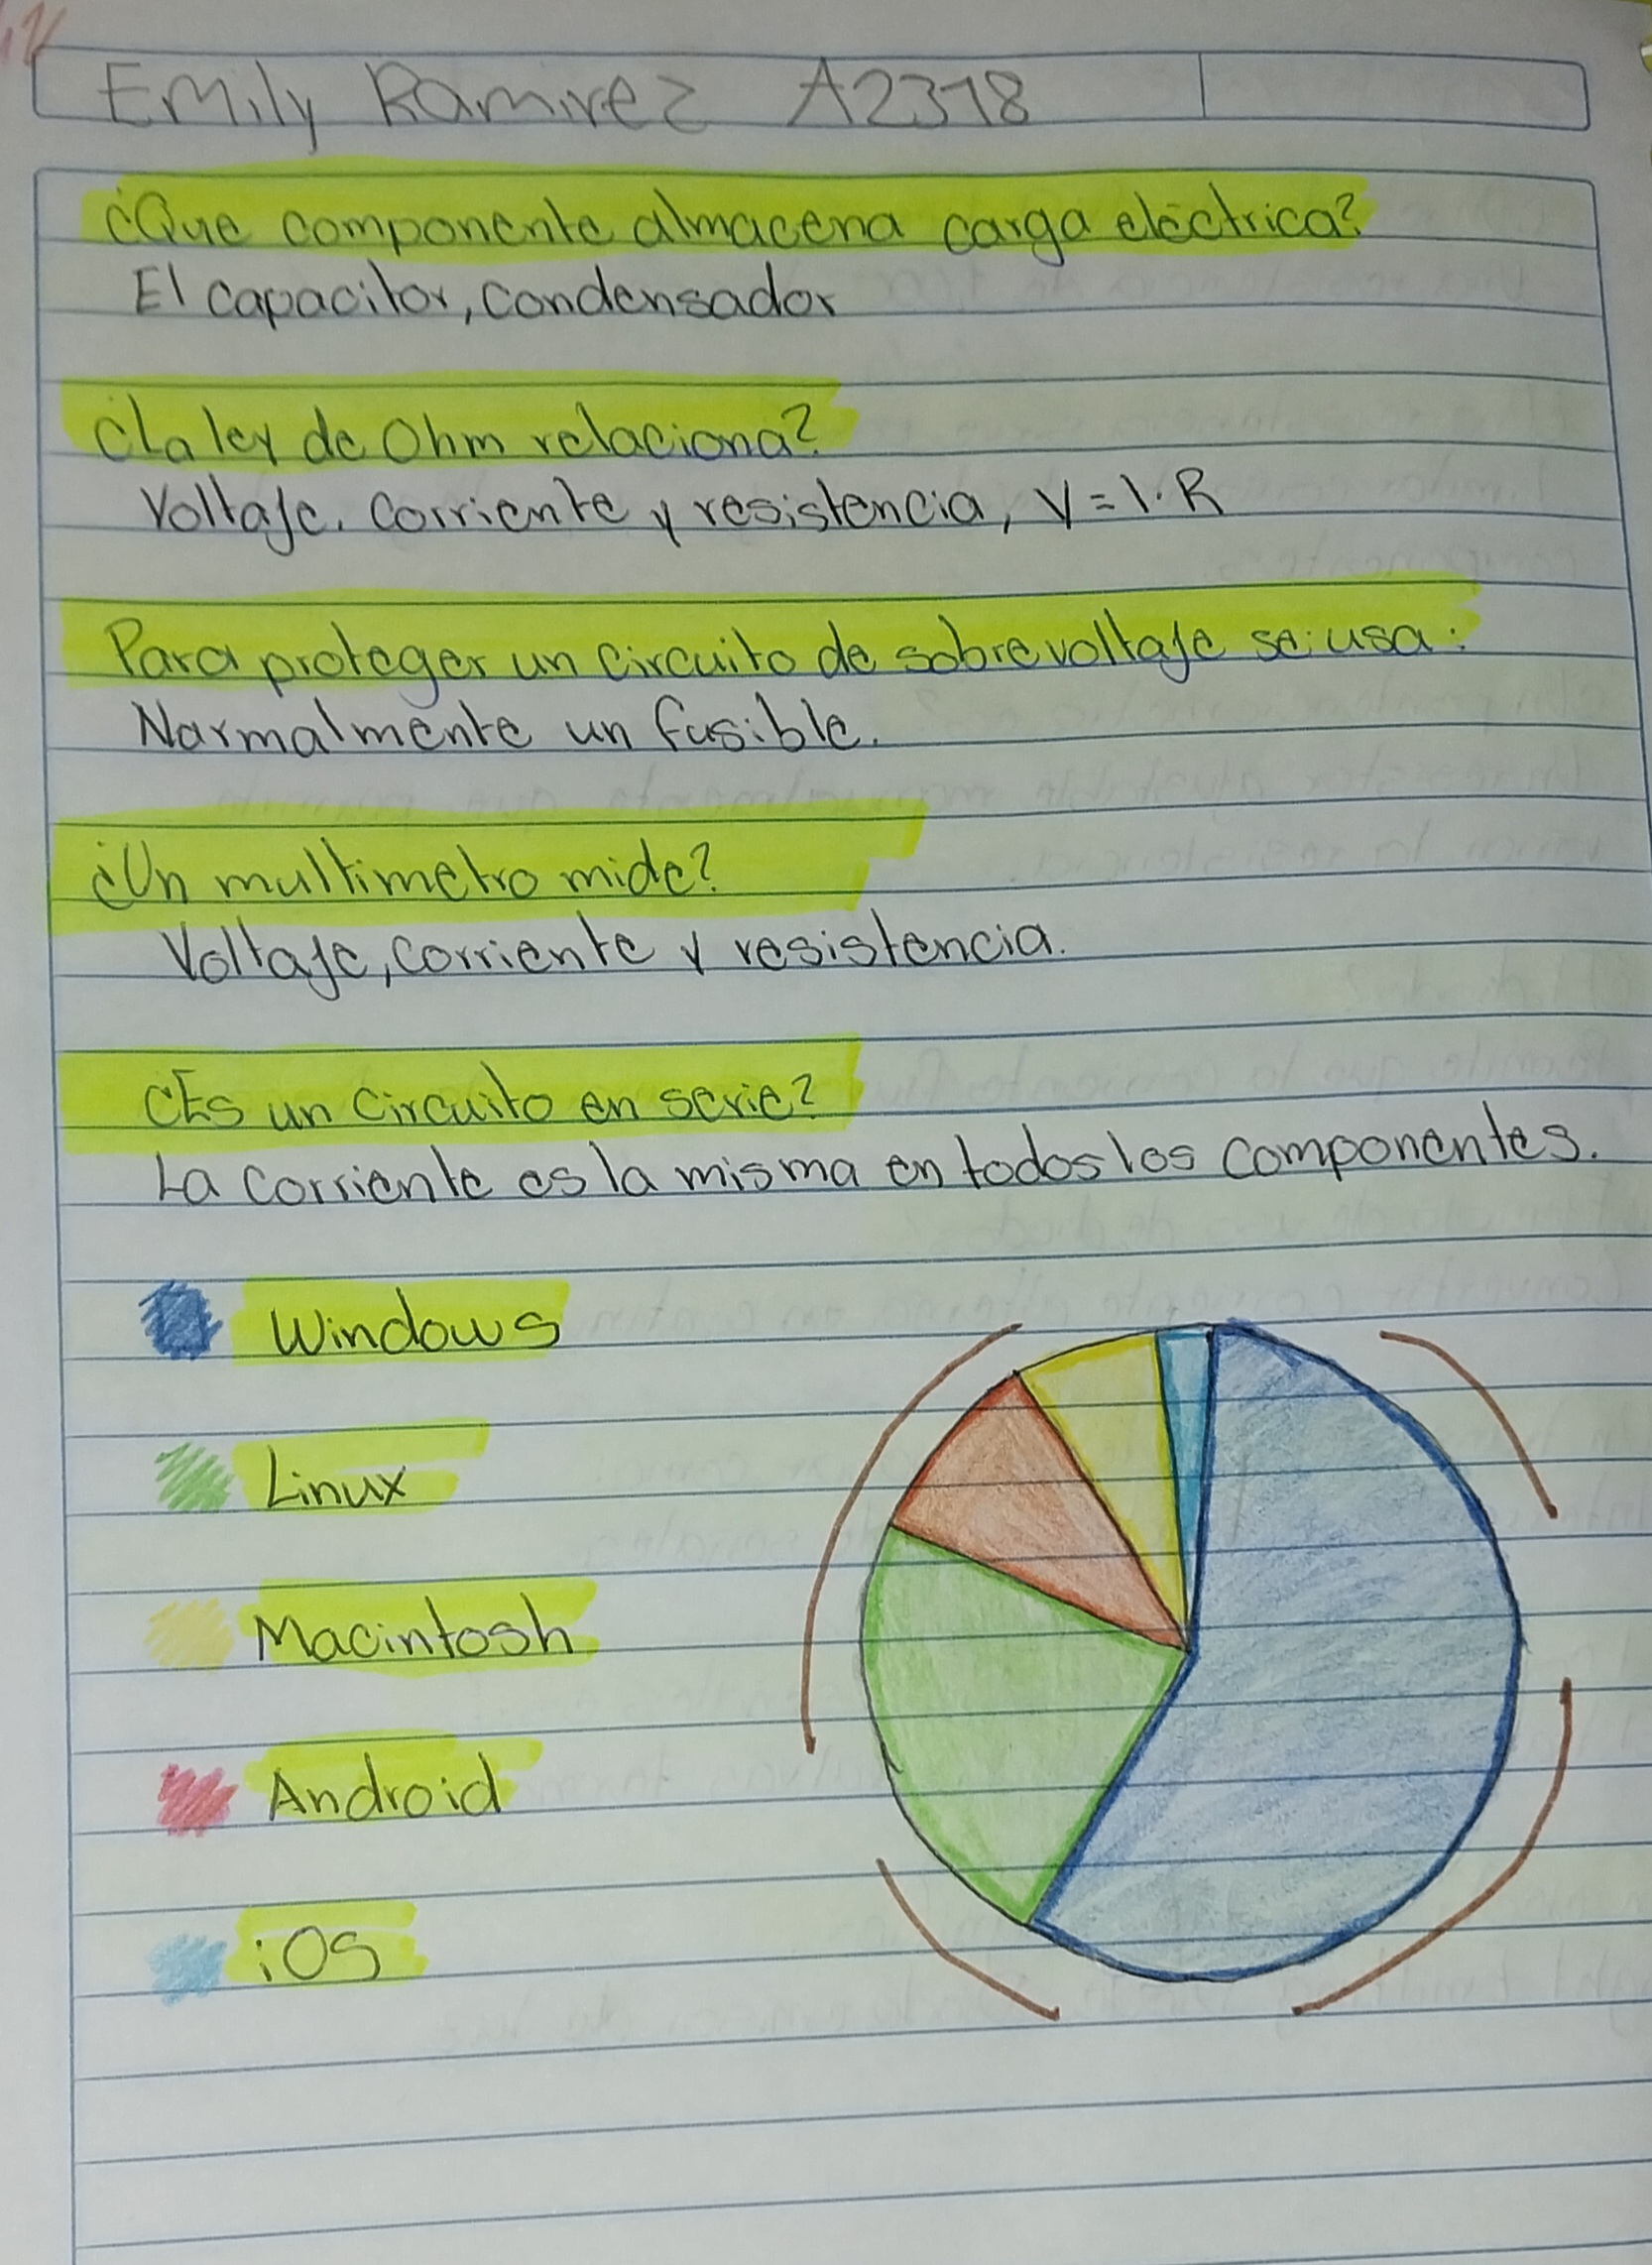 Emily Ramirez A2318
¿Que componente almacena carga eléctrica?
El capacitor, condensador
¿La ley de Ohm relaciona?
Voltaje. Corriente y resistencia, V = I · R
Para proteger un circuito de sobrevoltaje se usa:
Normalmente un fusible.
¿Un multimetro mide?
Voltaje, corriente y resistencia.
¿Es un circuito en serie?
La corriente es la misma en todos los componentes.
Windows
Linux
Macintosh
Android
iOS